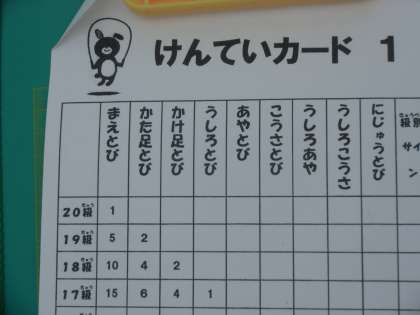 けんていカード 1
まえとび かた足とび かけ足とび うしろとび あやとび こうさとび うしろあや うしろこうさ にじゅうとび 級別サイン
20級 1
19級 5 2
18級 10 4 2
17級 15 6 4 1